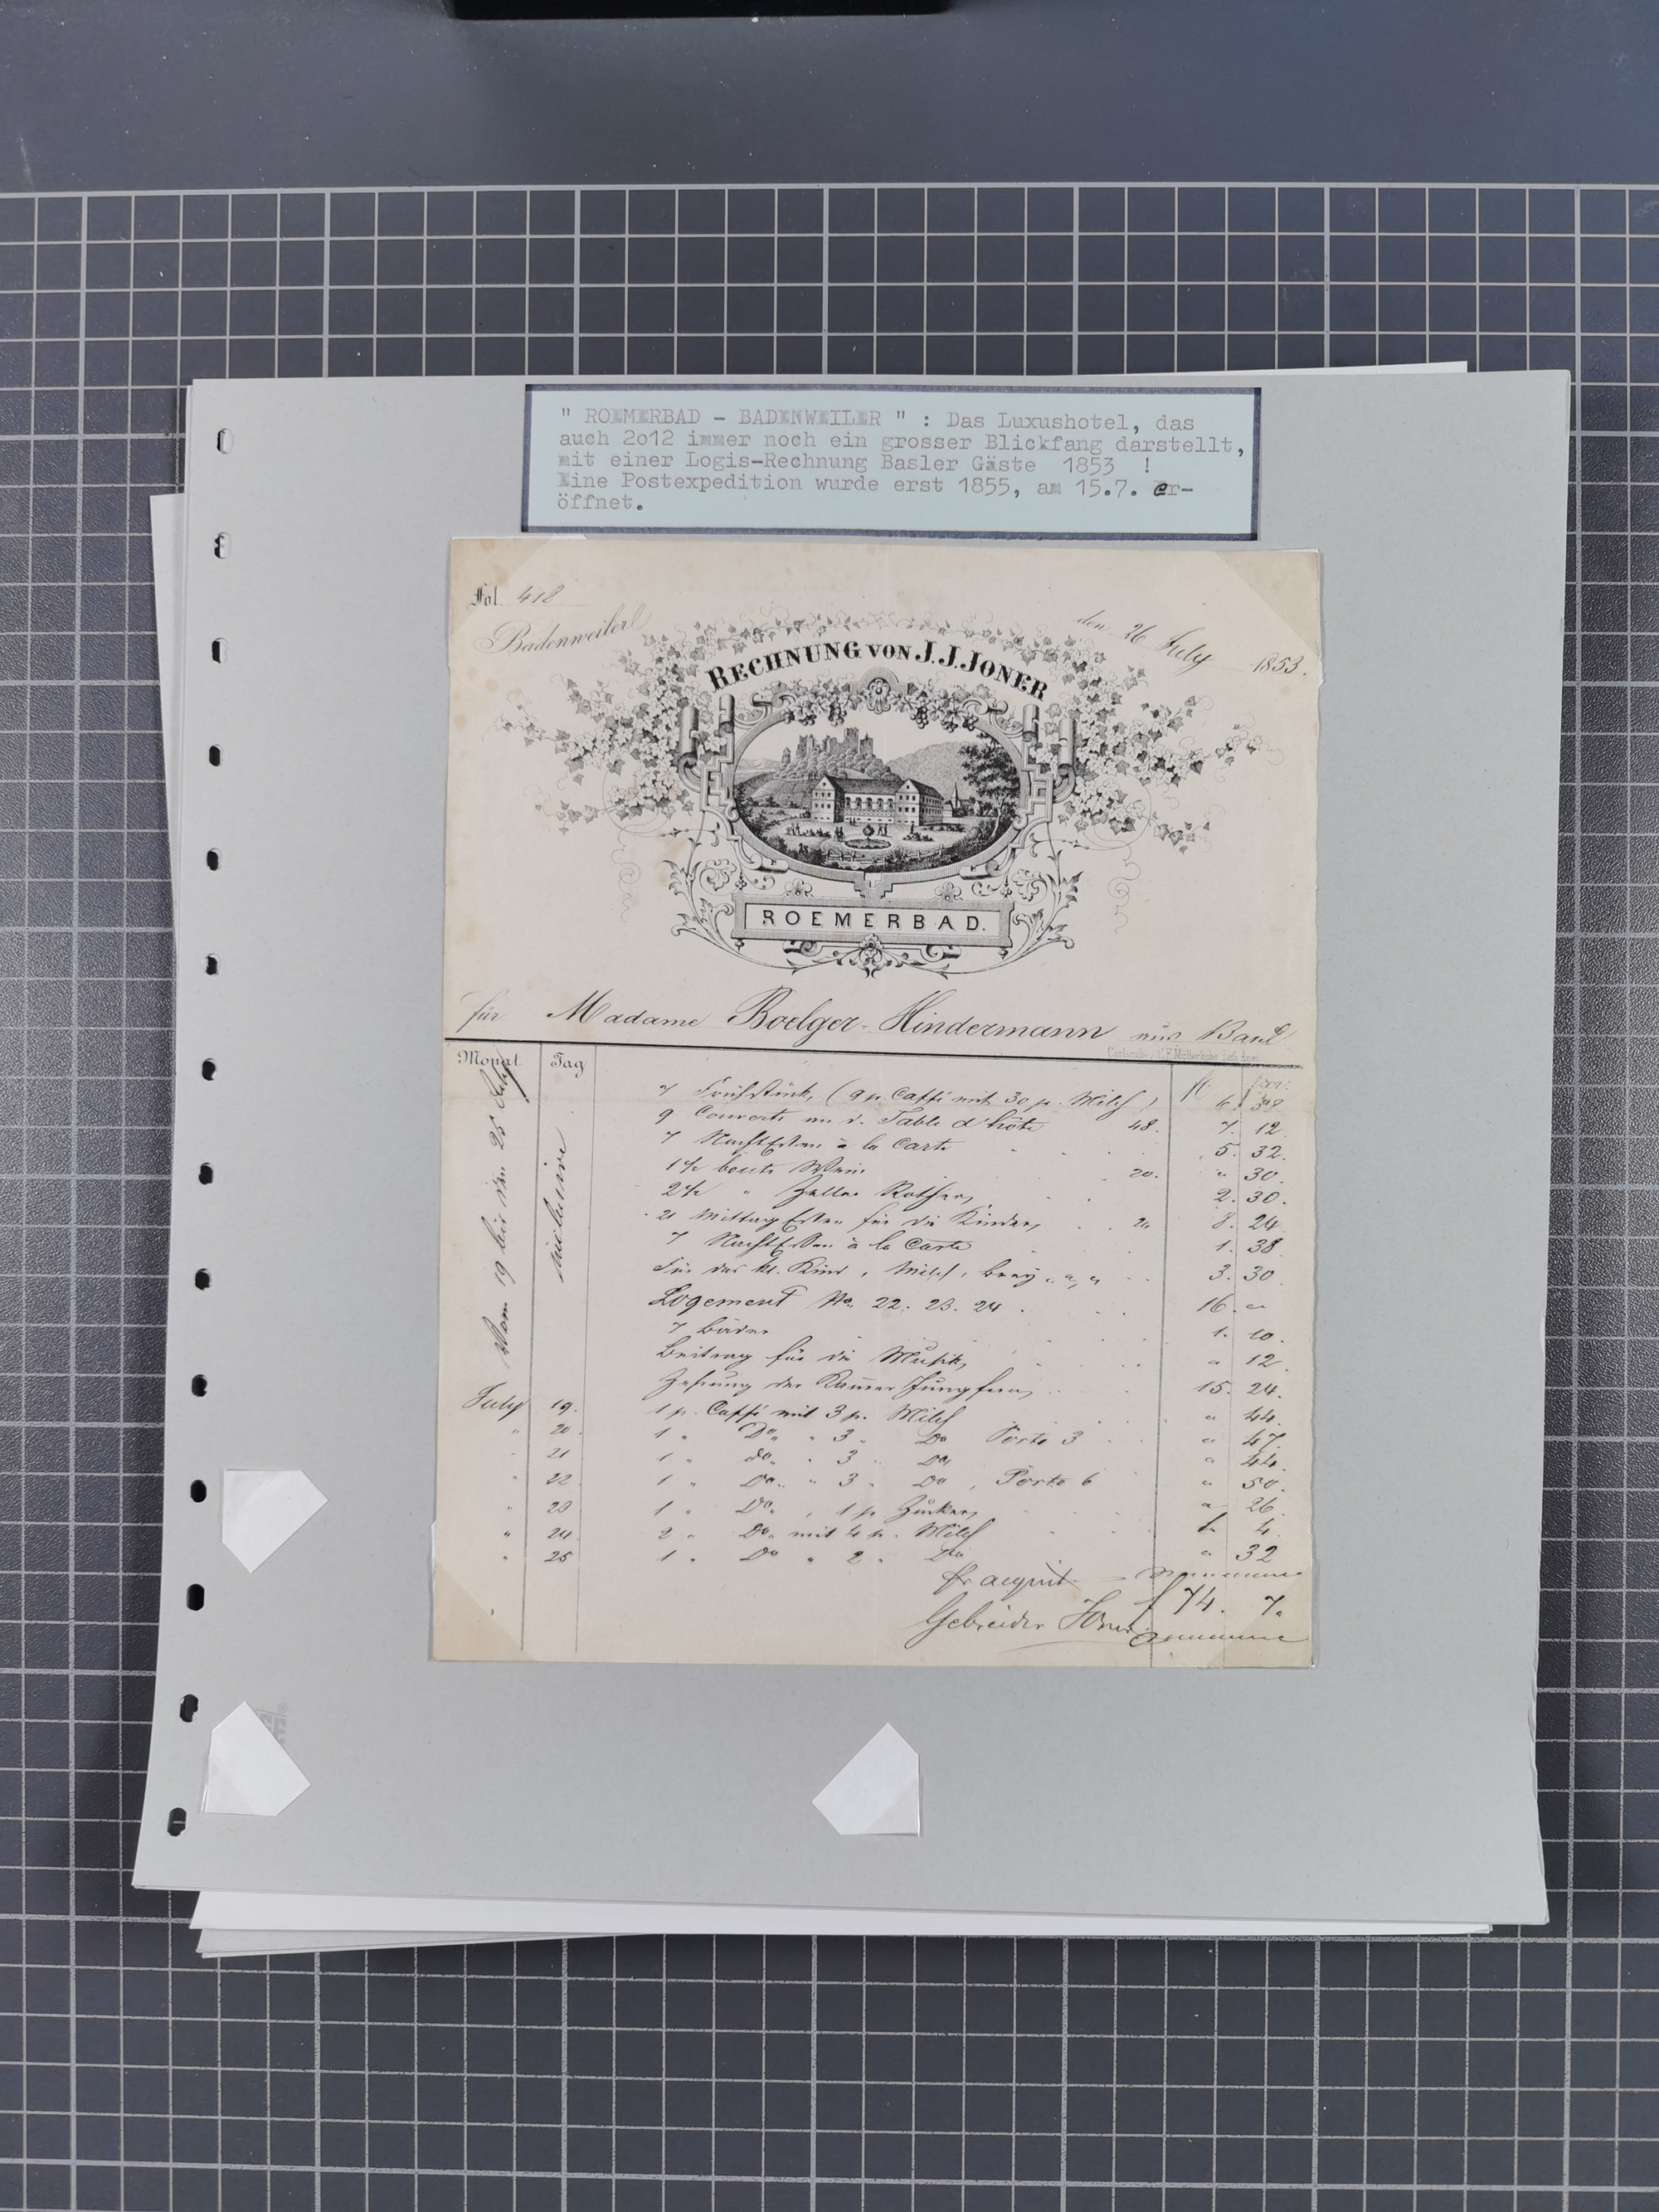 " ROEMERBAD - BADENWEILER " : Das Luxushotel, das
auch 2o12 immer noch ein grosser Blickfang darstellt,
mit einer Logis-Rechnung Basler Gäste 1853 !
Eine Postexpedition wurde erst 1855, am 15.7. er-
öffnet.
Fol. 418
Badenweiler den 26 July 1853.
RECHNUNG VON J.J.JONER
ROEMERBAD.
für Madame Boelger-Hindermann aus Basel
Carlsruhe, C.F. Müller'sche Lith. Anst.
Monat Tag fl.
Vom 19 bis den 25 July
inclusive
7 Frühstück, (9 p. Caffé mit 30 p. Milch) 6.
9 Couverts an d. Table d'hôte 48. 7. 12
7 Nachtessen à la Carte 5. 32.
Wein 20. " 30.
" Zeller Rother, 2. 30.
21 Mittag Essen für die Kinder, 8. 24
7 Nachtessen à la Carte 1. 38
Für das kl. Kind, Milch, 3. 30
Logement No. 22. 23. 24. 16. "
7 Bäder 1. 10.
Beitrag für die Musik, " 12.
Zehrung der Kammer Jungfern, 15. 24.
July 19. 1 p. Caffé mit 3 p. Milch " 44.
" 20. 1 " Do " 3 " Do Porto 3 " 47.
" 21 1 " do " 3 " Do " 44.
" 22. 1 " Do " 3 " Do, Porto 6 " 50.
" 23 1 " Do, 1 p Zucker, " 26.
" 24. 2 " Do mit 4 p. Milch 1. 4.
" 25 1 " Do " 2 " Do " 32
pr acquit
f 74. 7.
Gebrüder Joner